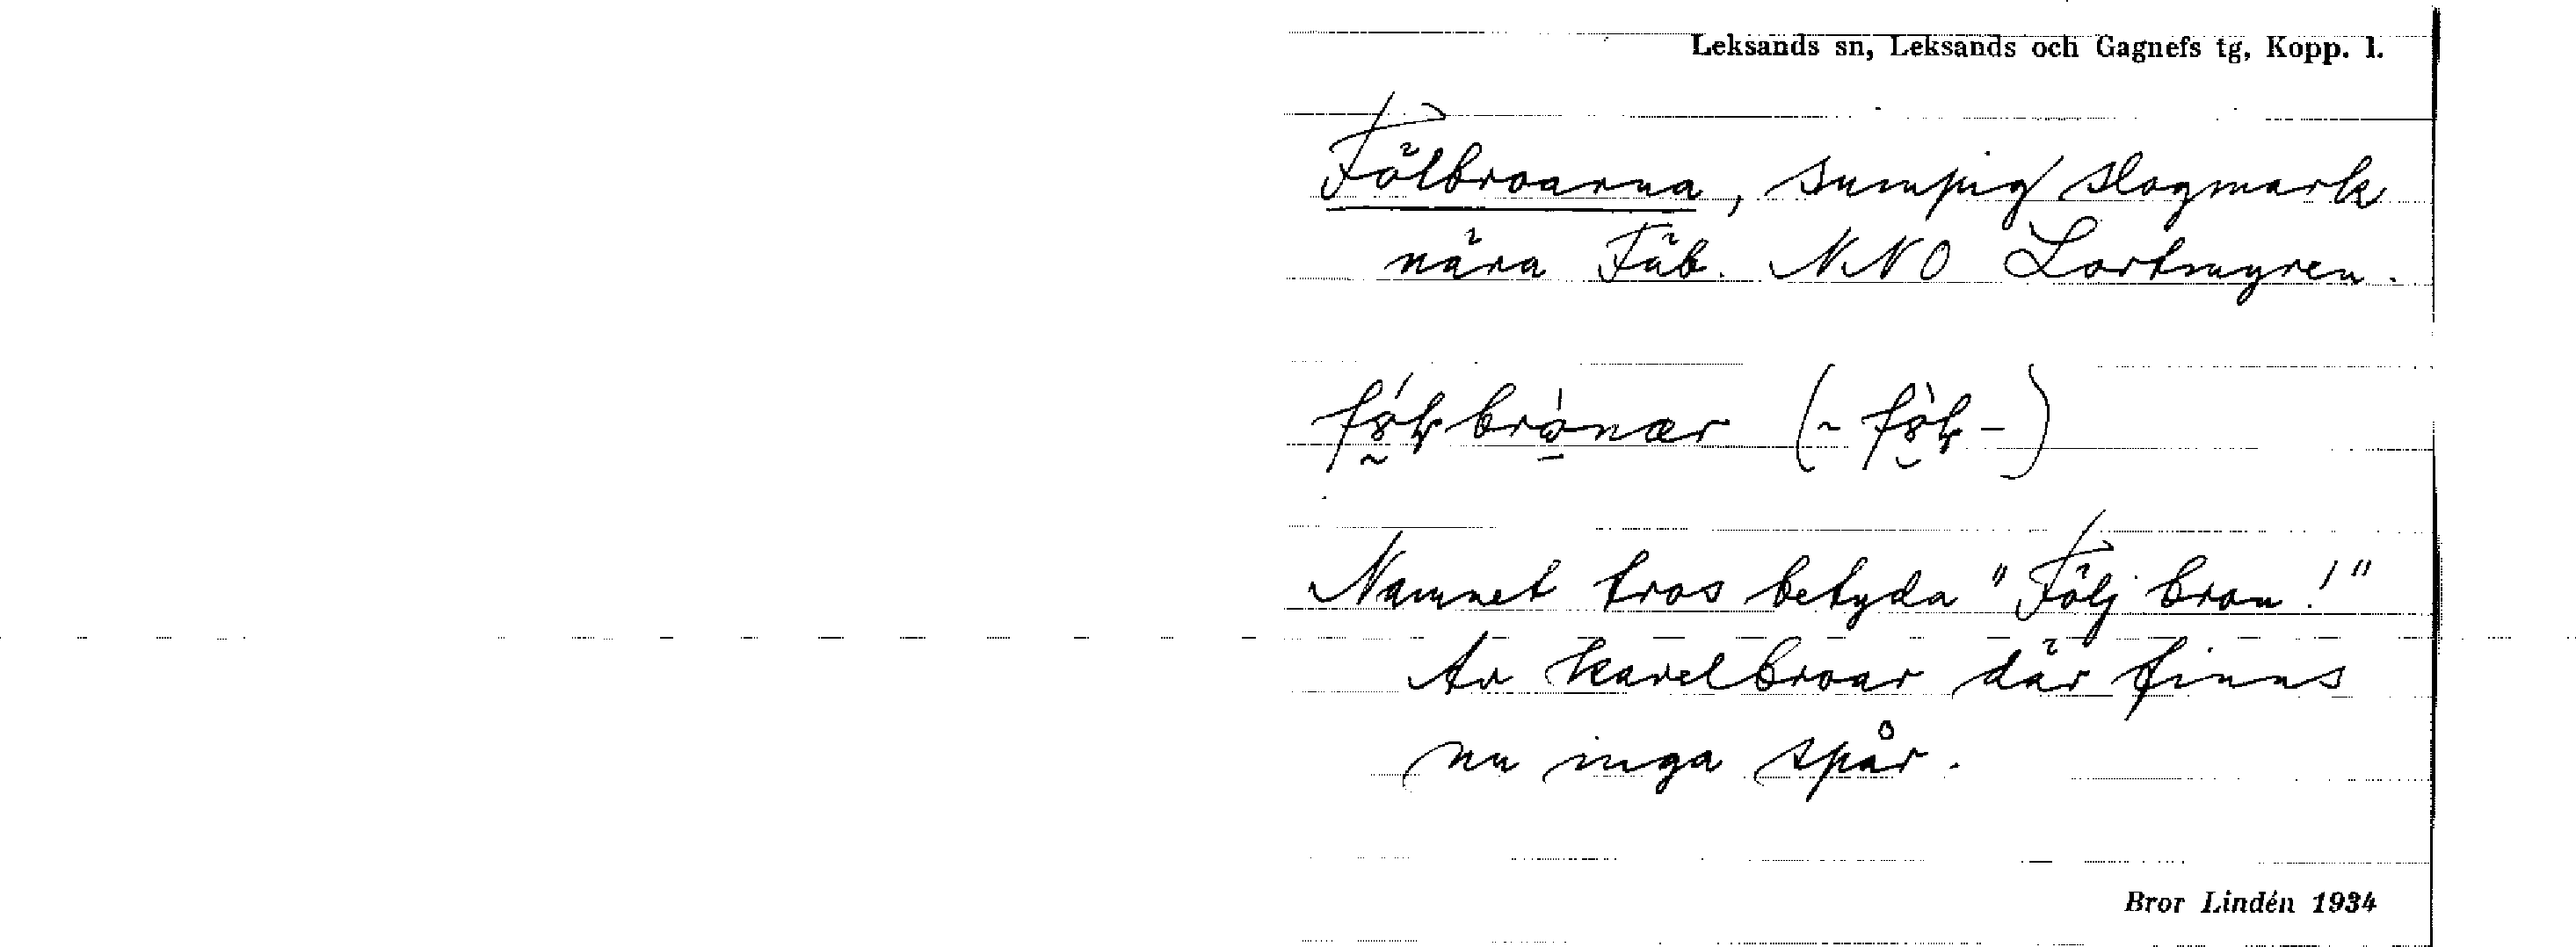 Leksands sn, Leksands och Gagnefs tg, Kopp. l.
Fölbroarna, sumpig slogmark
nära Fäb. NNO Lortmyren.
Namnet tros betyda "Följ bron!"
Av kavelbroar där finns
nu inga spår.
Bror Lindén 1934